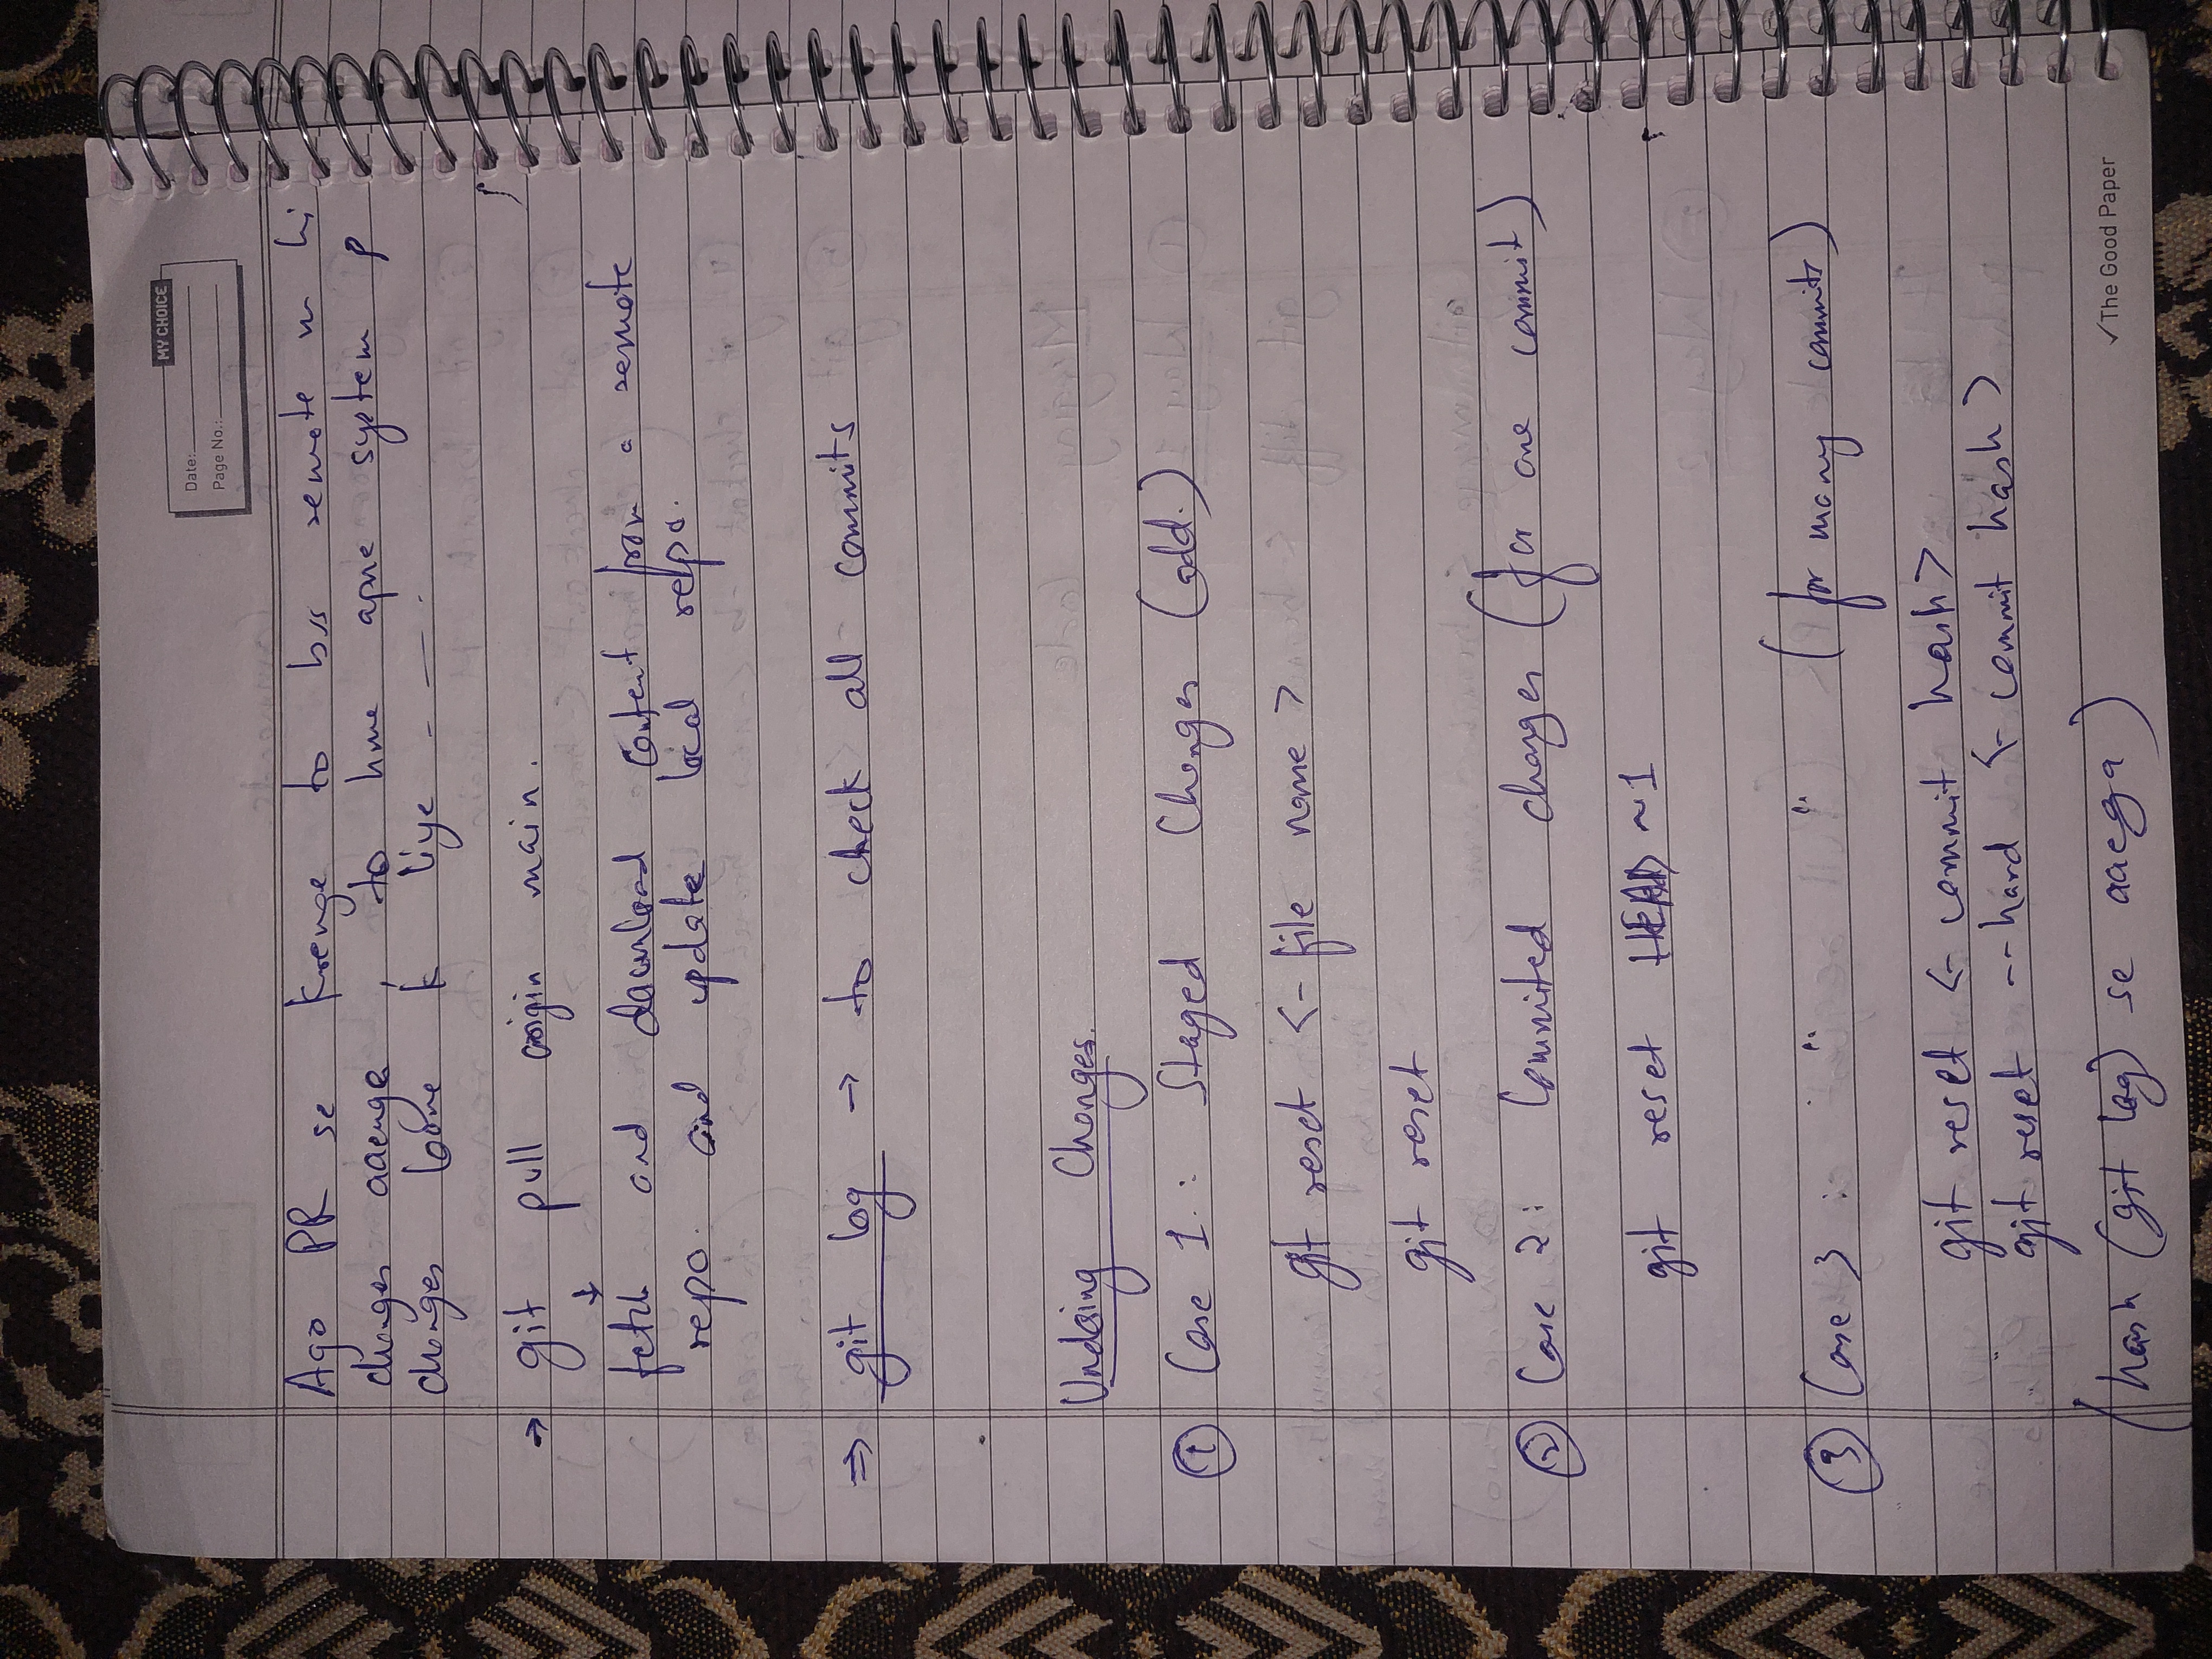 MY CHOICE
Date:
Page No.:
Agr PR se krenge to bss remote m hi
changes aaenge , to hme apne system p
changes lane k liye - - - .
→ git pull origin main.
↓
fetch and download content from a remote
repo. and update local repo.
⇒ git log → to check all commits
Undoing Changes.
① Case 1. : Staged Changes (add.)
git reset <- file name >
git reset
② Case 2 : Commited changes (for one commit)
git reset HEAD ~1
③ Case 3 : " " (for many commits)
git reset <- commit hash>
git reset --hard <- commit hash >
(hash (git log) se aaega)
✓The Good Paper